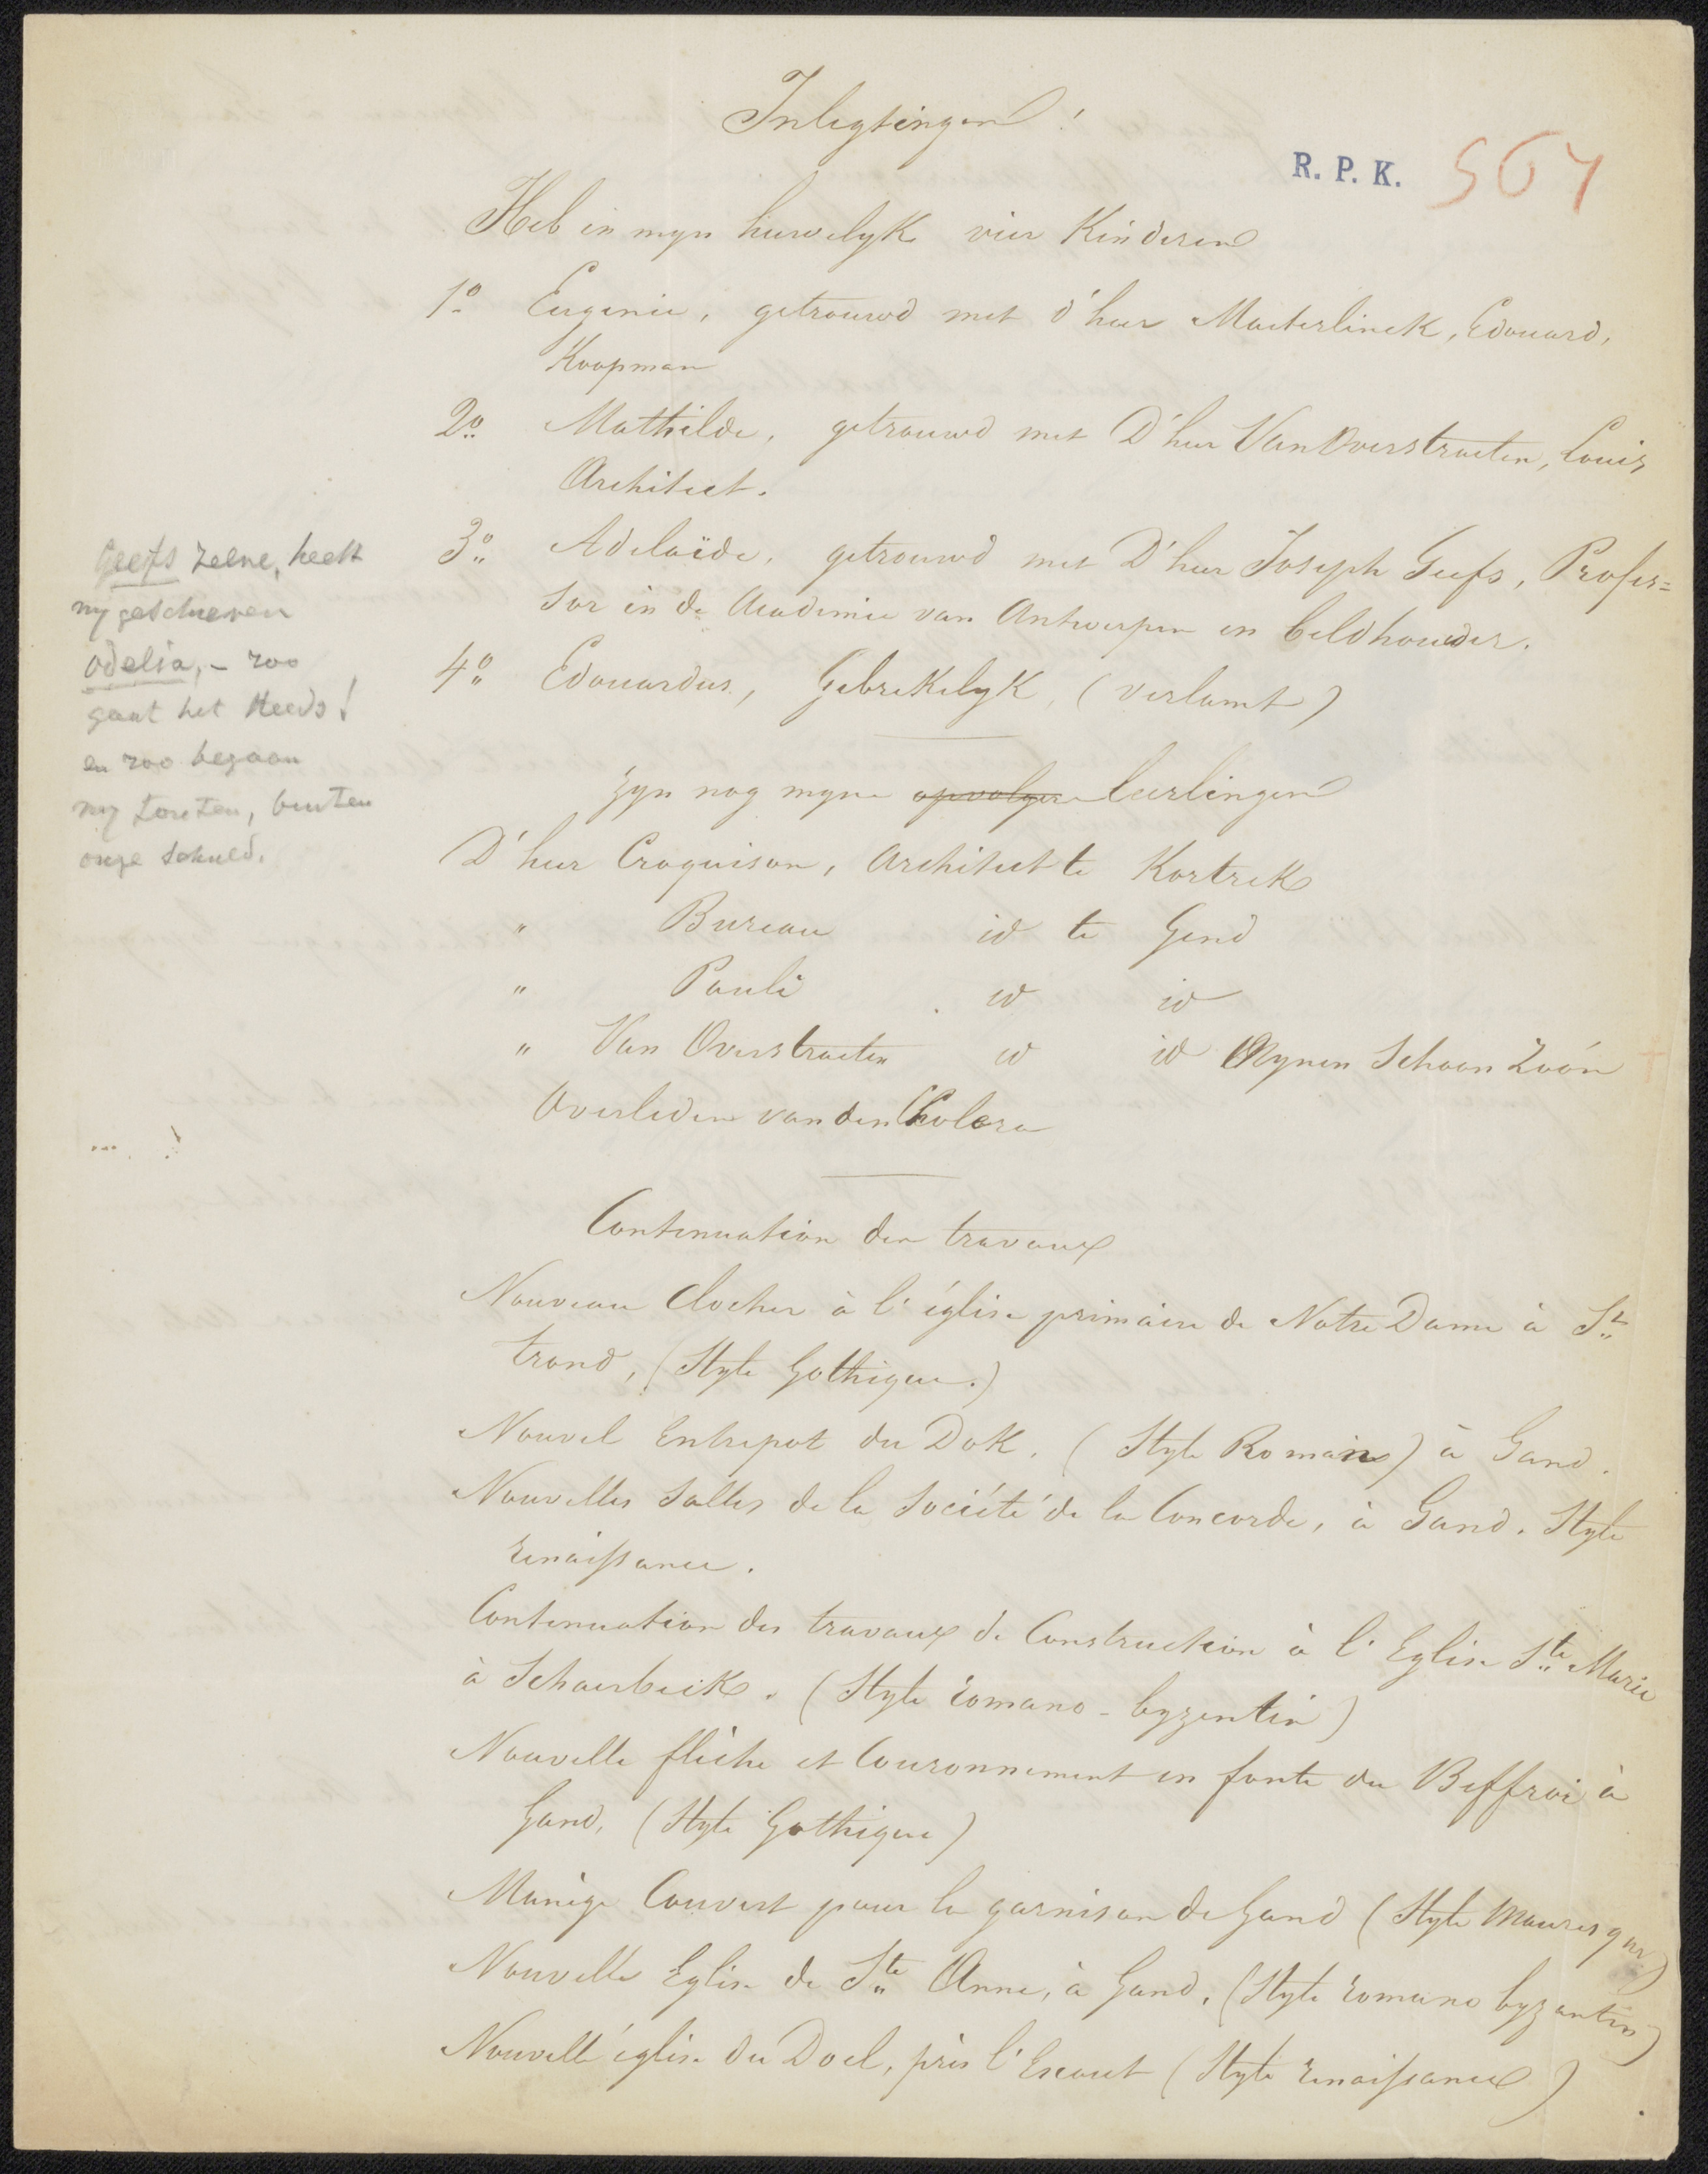 Inligtingen!
R. P. K. 567
Heb in myn huwelyk vier Kinderen
1o Eugenie, getrouwd met d'heer Maeterlinck, Edouard,
Koopman
2o Mathilde, getrouwd met D'heer Van Overstraeten, Louis
Architect.
3o Adelaïde, getrouwd met D'heer Joseph Geefs, Profes=
sor in de Academie van Antwerpen en beldhouwder.
4o Edouardus, Gebrekelyk, (verlamt)
Geefs zelve, heeft
my geschreven
Odelia, - zoo
gaat het steeds!
en zoo begaan
wy fouten, buiten
onze schuld.
zyn nog myne opvolgere leerlingen
D'heer Croquison, Architect te Kortrek
" Bureau id te Gend
" Pauli id id
" Van Overstraeten id id Mynen Schoon Zoón
Overleden van den Cholera
Continuation der travaux
Nouveau Clocher à l'église primaire de Notre Dame à St
trond, (Style Gothique.)
Nouvel Entrepot du Dok. (Style Romain) à Gand.
Nouvelles Salles de la Société de la Concorde, à Gand. Style
renaissance.
Continuation des travaux de Construction à l'Eglise Ste Marie
à Schaerbeek. (Style romano-byzentin)
Nouvelle flèche et Couronnement en fonte du Beffroi à
Gand, (Style Gothique)
Manège Couvert pour la garnison de Gand (Style Mauresque)
Nouvelle Eglise de Ste Anne, à Gand, (Style romano byzantin)
Nouvelle église du Doel, près l'Escaut (Style renaissance)